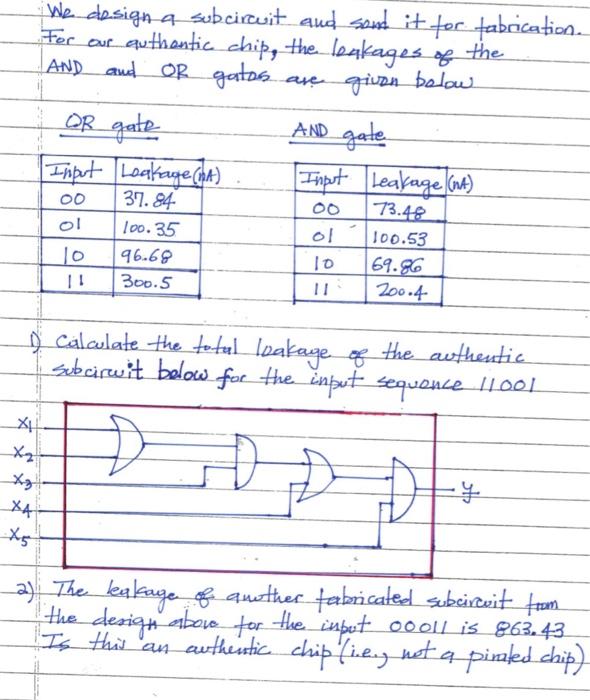 We design a subcircuit and send it for fabrication.
For our authentic chip, the leakages of the
AND and OR gates are given below
OR gate
AND gate
Input Leakage (nA)
00 37.84
01 100.35
10 96.68
11 300.5
Input Leakage (nA)
00 73.48
01 100.53
10 69.86
11 200.4
1) Calculate the total leakage of the authentic
subcircuit below for the input sequence 11001
X1
X2
X3
X4
X5
y
2) The leakage of another fabricated subcircuit from
the design above for the input 00011 is 863.43
Is this an authentic chip (i.e., not a pirated chip)